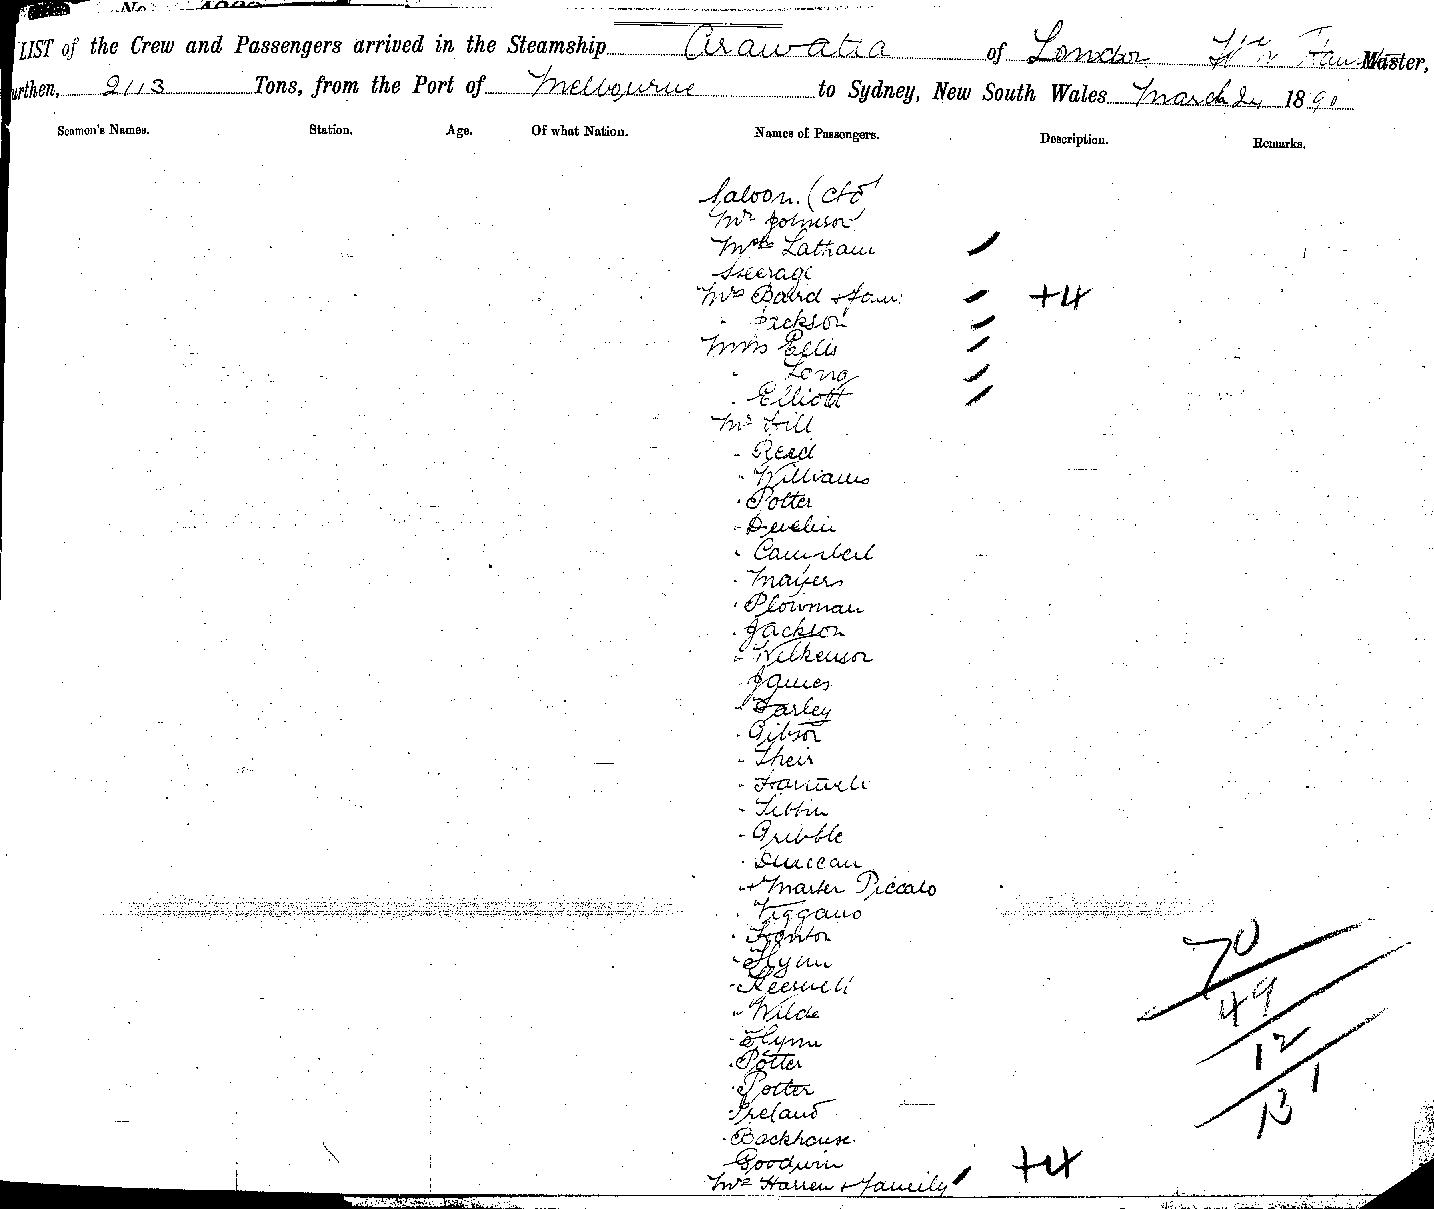 No.
LIST of the Crew and Passengers arrived in the Steamship Arawatta of London Wm Master,
urthen, 2113 Tons, from the Port of Melbourne to Sydney, New South Wales March 24 1890
Seamen's Names. Station. Age. Of what Nation. Names of Passengers. Description. Remarks.
Saloon. (Ctd
Mr Johnson
Mrs Latham
Steerage
Mrs Baird & fam: +4
" Jackson
Miss Ellis
" Long
" Elliott
Mr Hill
" Reed
" Williams
" Potter
" Devlin
" Campbell
" Mayers
" Plowman
" Jackson
" Wilkenson
James
" Farley
" Gibson
" Their
" Fartwell
" Tibbin
" Gribble
" Duncan
" + Master Piccalo
" Viggano
" Fenton
" Flynn
"
" Wilde
" Flynn
" Potter
" Potter
" Ireland
" Backhouse
Goodwin
Mrs Harren & family +4
70
49
12
131